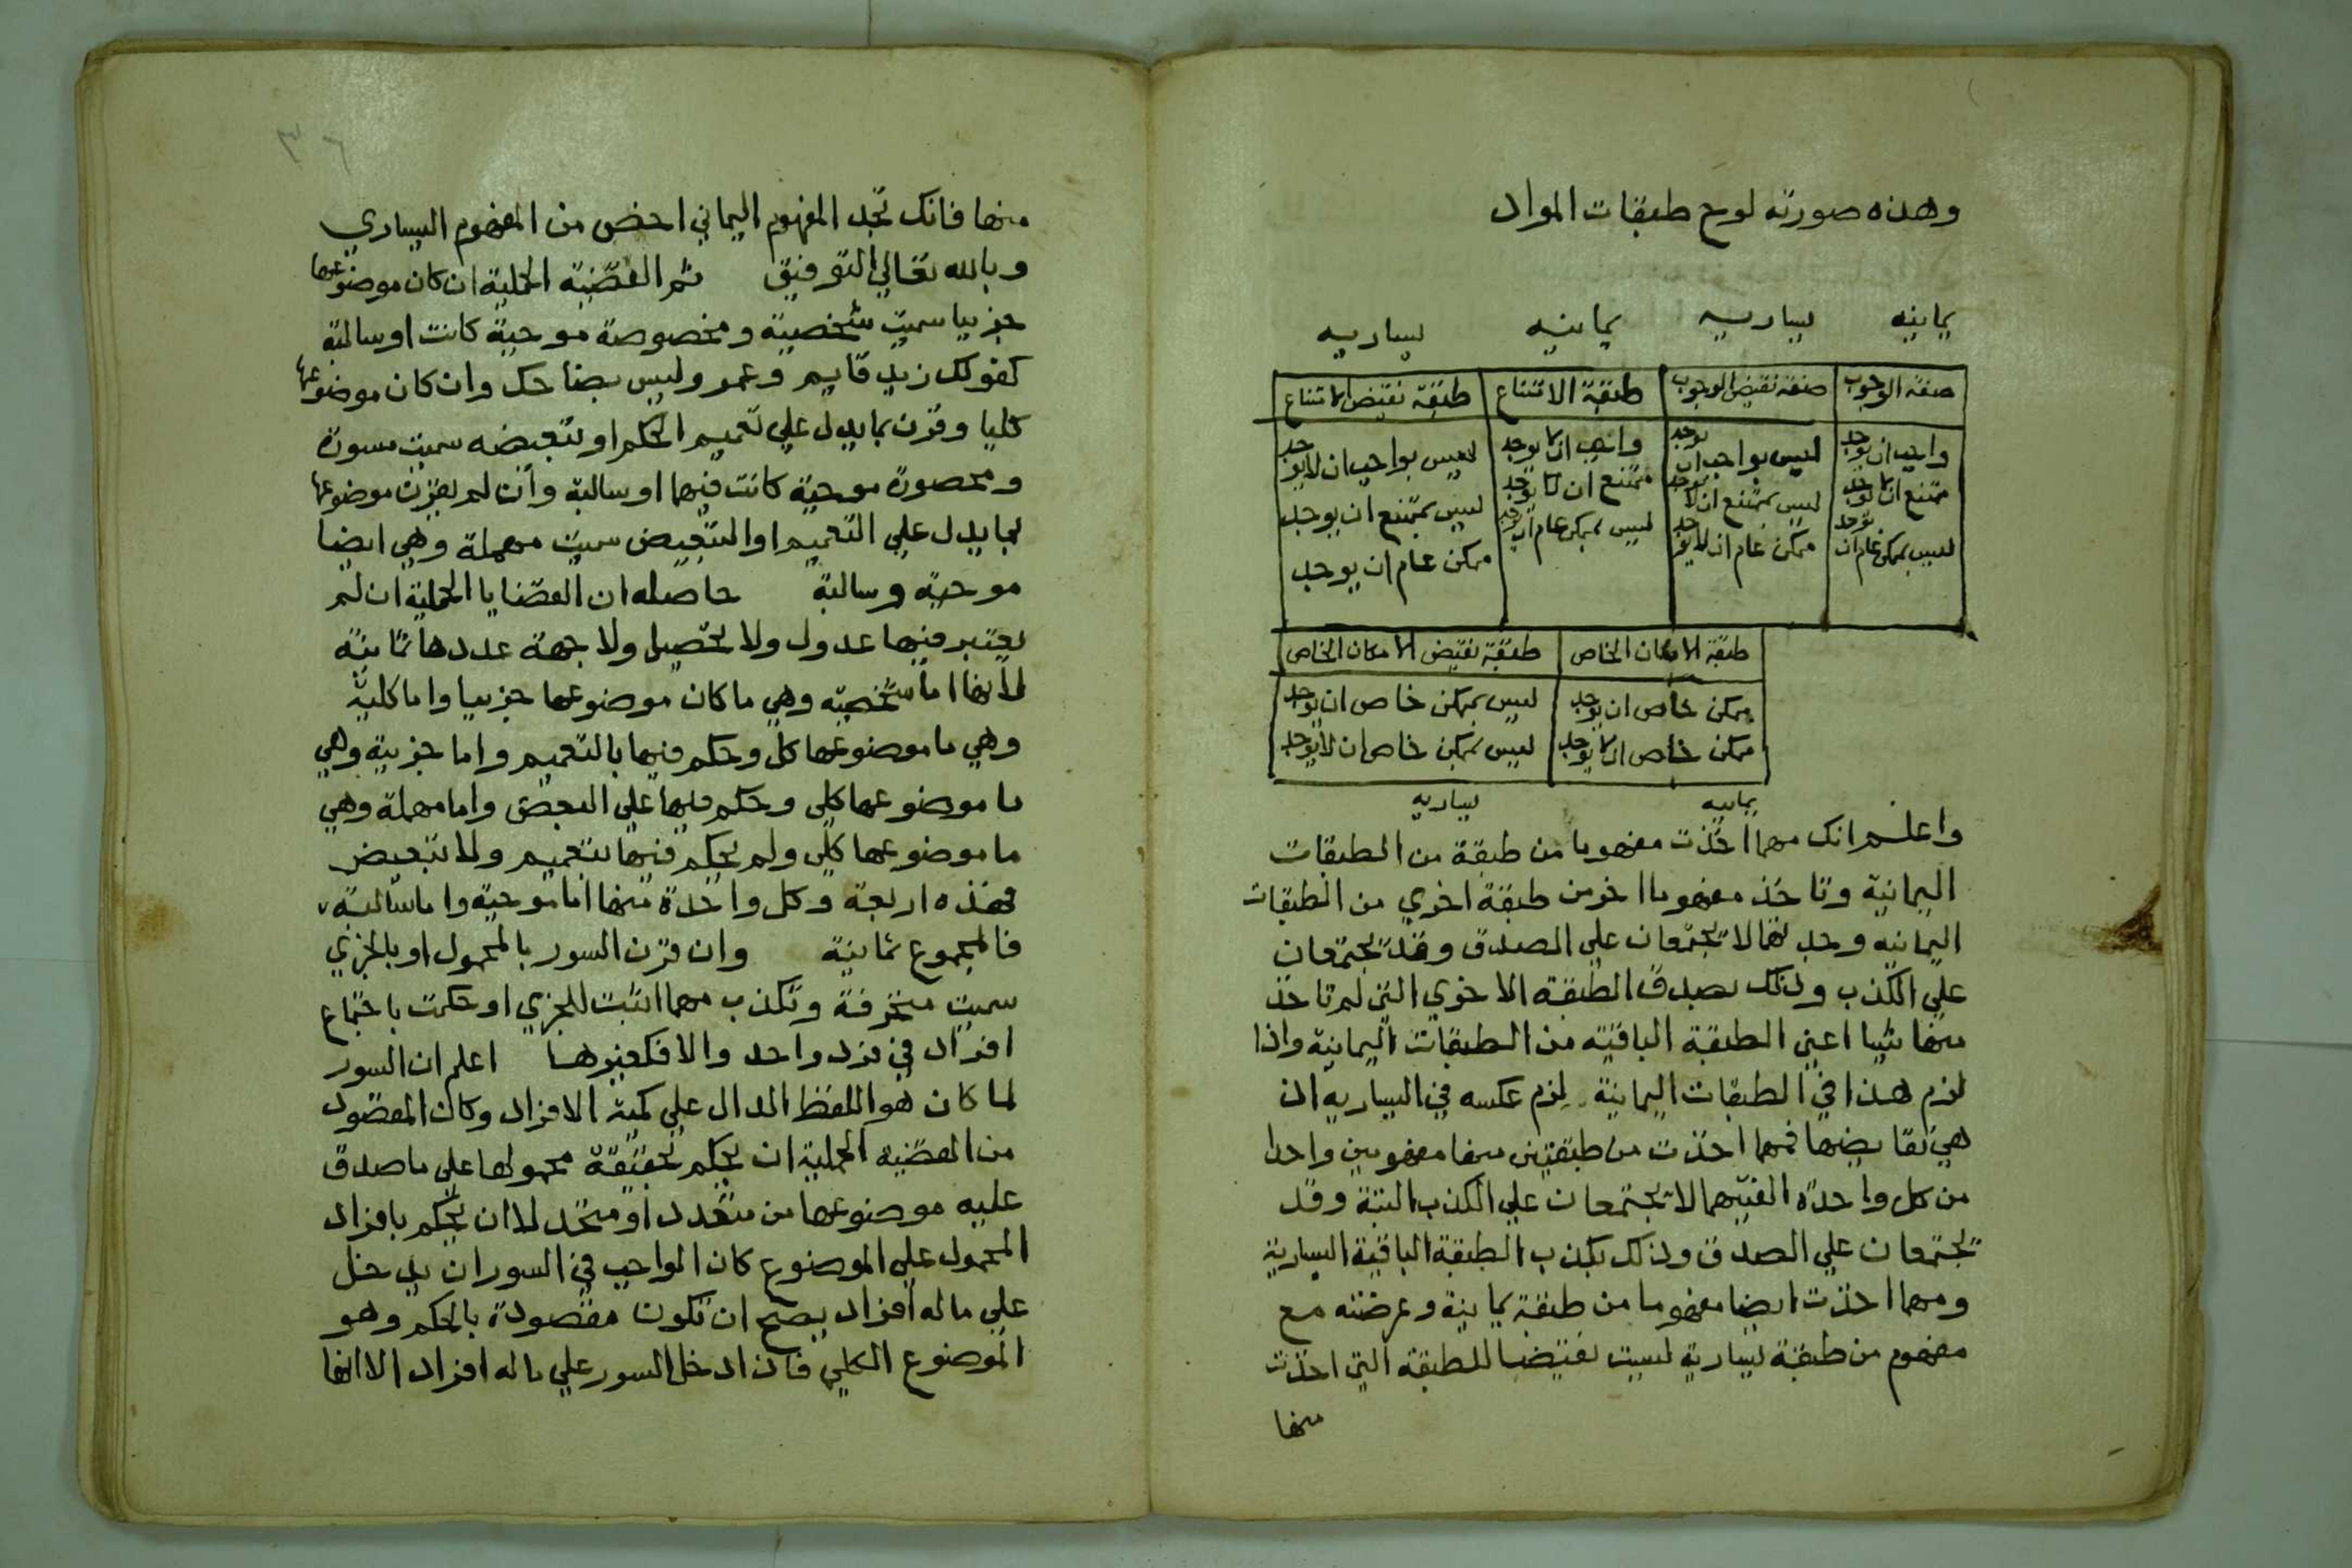 وهذه صورته لوح طبقات المواد
يمانيه يساريه يمانيه يساريه
صفة الوجوب صفة نقيض الوجوب طبقة الامتناع طبقة نقيض الامتناع
واجب ان يوجد ليس بواجب ان يوجد واجب ان لا يوجد ليس بواجب ان لا يوجد
ممتنع ان لا يوجد ليس بممتنع ان لا يوجد ممتنع ان لا يوجد ليس بممتنع ان يوجد
ليس بممكن عام ان يوجد ممكن عام ان لا يوجد ليس بممكن عام ان يوجد ممكن عام ان يوجد
طبقة الامكان الخاص طبقة نقيض الامكان الخاص
ممكن خاص ان يوجد ليس بممكن خاص ان يوجد
ممكن خاص ان لا يوجد ليس بممكن خاص ان لا يوجد
يمانيه يساريه
واعلم انك مهما اخذت مفهوما من طبقة من الطبقات
اليمانية وتاخذ مفهوما اخر من طبقة اخري من الطبقات
اليمانيه وجدتهما لا تجتمعان علي الصدق وقد تجتمعان
علي الكذب وذلك بصدق الطبقة الاخري التي لم تاخذ
منها شيا اعني الطبقة الباقية من الطبقات اليمانية واذا
لزم هذا في الطبقات اليمانية لزم عكسه في اليساريه اذ
هي نقايضها فمهما اخذت من طبقتين منها مفهومين واحدا
من كل واحدة الفيتهما لا تجتمعان علي الكذب البتة وقد
تجتمعان علي الصدق وذلك بكذب الطبقة الباقية اليسارية
ومهما اخذت ايضا مفهوما من طبقة يمانية وعرضته مع
مفهوم من طبقة يسارية ليست نقيضا للطبقة التي اخذت
منها
منها فانك تجد المفهوم اليماني اخص من المفهوم اليساري
وبالله تعالي التوفيق ثم القضية الحملية ان كان موضوعها
جزييا سميت شخصية ومخصوصة موجبة كانت او سالبة
كقولك زيد قايم وعمر وليس بضاحك وان كان موضوعها
كليا وقرن بما يدل علي تعميم الحكم او تبعيضه سميت مسورة
ومحصورة موجبة كانت فيهما او سالبة وان لم يقرن موضوعها
بما يدل علي التعميم او التبعيض سميت مهملة وهي ايضا
موجبة وسالبة حاصله ان القضايا الحملية ان لم
يعتبر فيها عدول ولا تحصيل ولا جهة عددها ثمانية
لانها اما شخصية وهي ما كان موضوعها جزييا واما كلية
وهي ما موضوعها كلي وحكم فيها بالتعميم واما جزيية وهي
ما موضوعها كلي وحكم فيها علي البعض واما مهملة وهي
ما موضوعها كلي ولم يحكم فيها بتعميم ولا تبعيض
فهذه اربعة وكل واحدة منها اما موجبة واما سالبة
فالمجموع ثمانية وان قرن السور بالمحمول او بالجزي
سميت منحرفة وتكذب مهما اثبت للجزي او حكمت باجتماع
افراد في فرد واحد والا فكغيرها اعلم ان السور
لما كان هو اللفظ الدال علي كمية الافراد وكان المقصود
من القضية الحملية ان يحكم بحقيقة محمولها علي ما صدق
عليه موضوعها من متعدد او متحد لا ان يحكم بافراد
المحمول علي الموضوع كان الواجب في السور ان يدخل
علي ما له افراد يصح ان تكون مقصودة بالحكم وهو
الموضوع الكلي فان ادخل السور علي ما له افراد الا انها